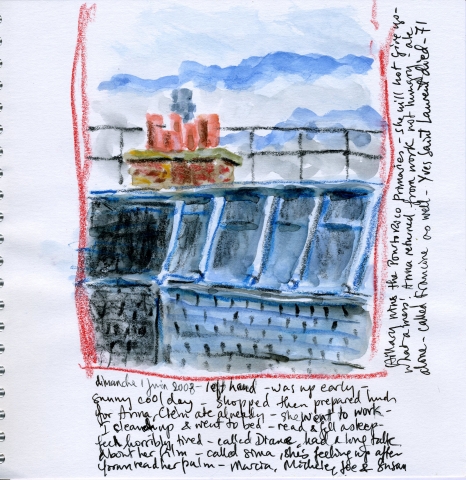 dimanche 1 Juin 2008 - left hand - was up early -
sunny cool day - shopped then prepared lunch
for Anna, Clem ate already - she went to work -
I cleaned up & went to bed - read & fell asleep -
feel horribly tired - called Diane, had a long talk
about her film - called Sima, she's feeling up after
read her palm - Marcia, Michele, Joe & Susan
Hillary won the Porto Rico Primaries - she will not give up -
what a mess! Anna returned from work not hungry - ate
alone - called Francine as well - Yves Saint Laurent died - 71